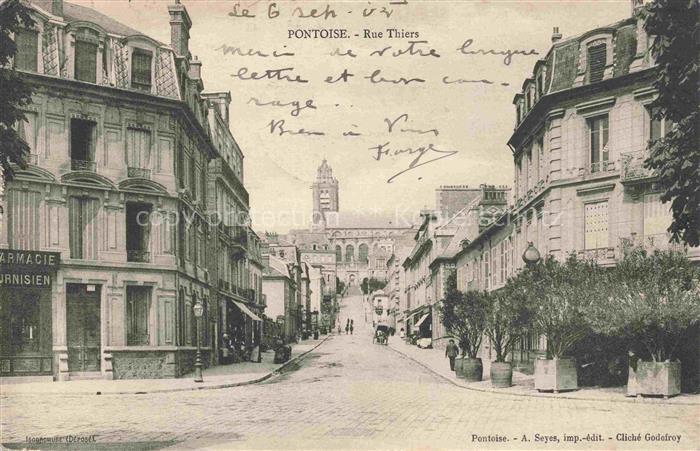 Le 6 Sept 02
PONTOISE. - Rue Thiers
merci de votre longue
lettre et bon cou
rage..
Bien à Vous
PHARMACIE
RNISIEN
copyright
Pontoise. - A. Seyes, imp.-édit. - Cliché Godefroy